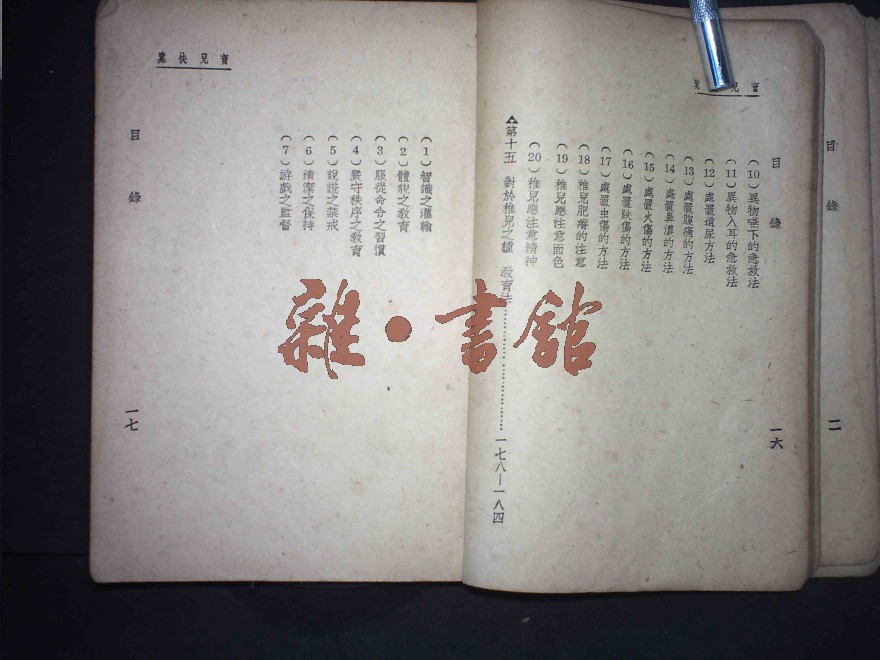 育兒
目錄
(10)異物嚥下的急救法
(11)異物入耳的急救法
(12)處置遺尿方法
(13)處置腹痛的方法
(14)處置鼻潰的方法
(15)處置火傷的方法
(16)處置跌傷的方法
(17)處置虫傷的方法
(18)稚兒肥瘠的注意
(19)稚兒應注意面色
(20)稚兒應注意精神
第十五 對於稚兒之種 教育法……一七八—一八四
一六
育兒快覽
目錄
(1)智識之灌輸
(2)體貌之教育
(3)服從命令之習慣
(4)嚴守秩序之教育
(5)說謊之禁戒
(6)清潔之保持
(7)游戲之監督
一七
目錄
雜·書館